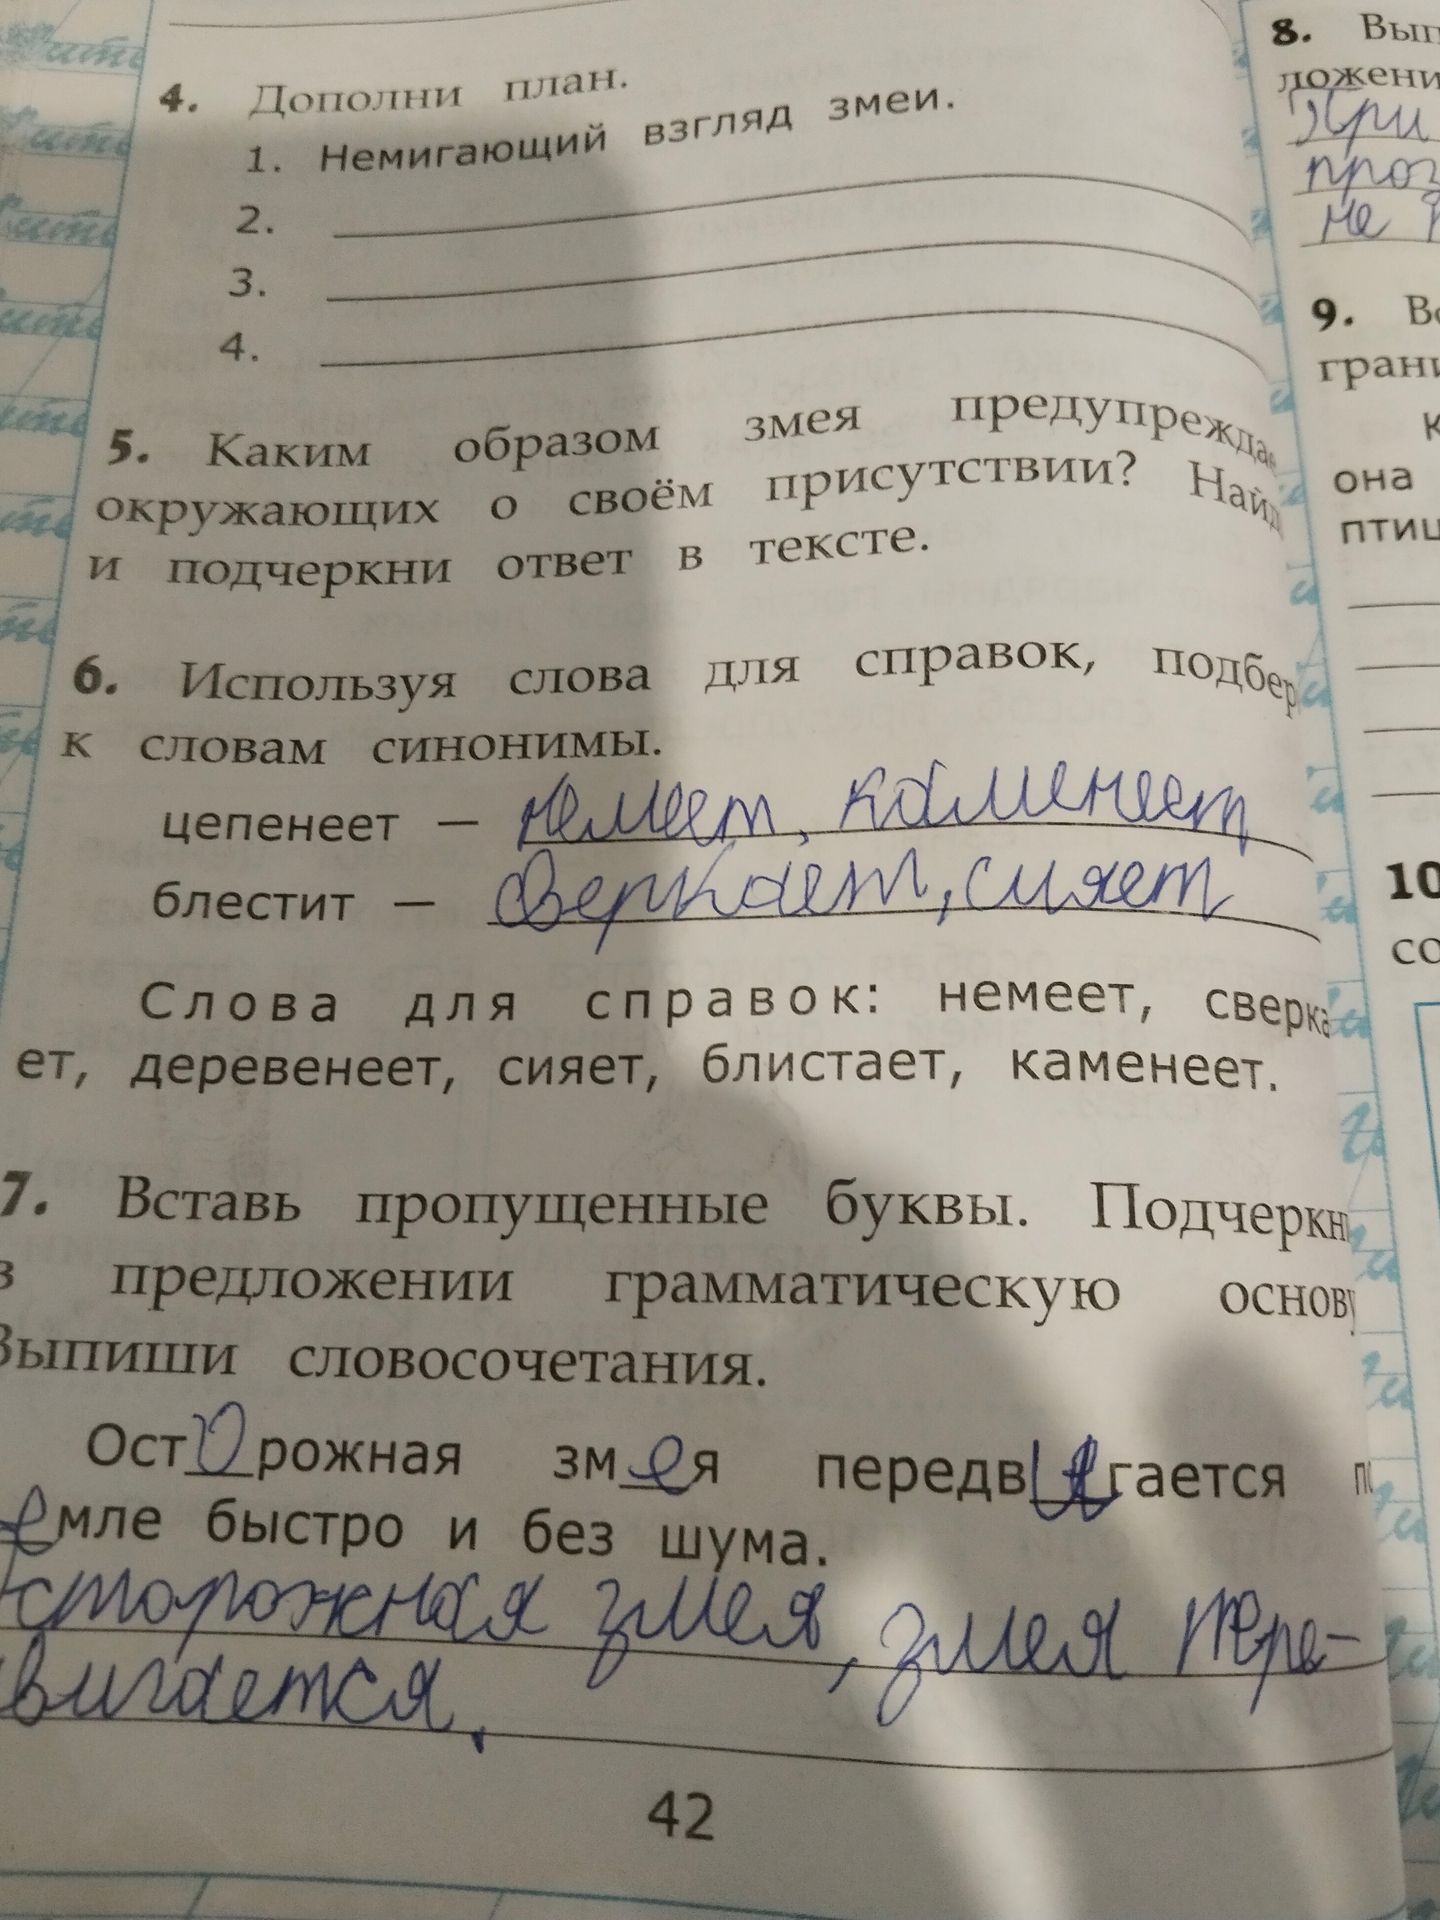 4. Дополни план.
1. Немигающий взгляд змеи.
2.
3.
4.
5. Каким образом змея предупреждае
окружающих о своём присутствии? Найд
и подчеркни ответ в тексте.
6. Используя слова для справок, подбер
к словам синонимы.
цепенеет — немеет, каменеет
блестит — сверкает, сияет
Слова для справок: немеет, сверка
ет, деревенеет, сияет, блистает, каменеет.
7. Вставь пропущенные буквы. Подчеркни
в предложении грамматическую основу
Выпиши словосочетания.
Осторожная змея передвигается по
емле быстро и без шума.
сторожная змея, змея пере-
вигается,
42
8. Вып
ложени
При
проз
не
9. Вс
грани
К
она
птиц
10
со